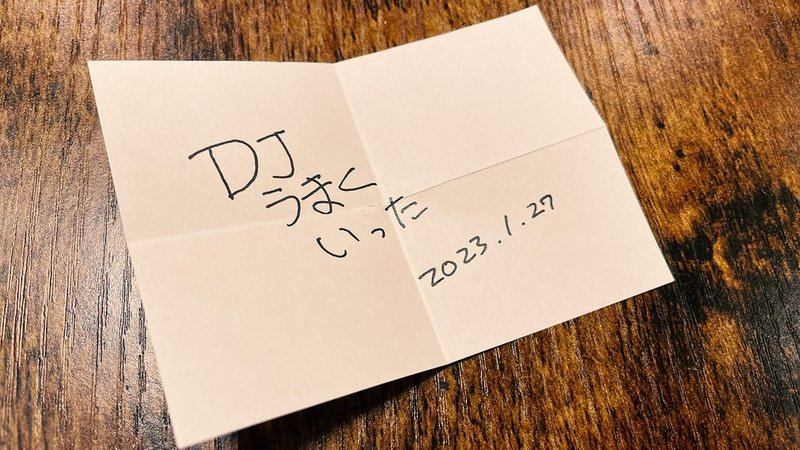 DJ
うまく
いった
2023.1.27